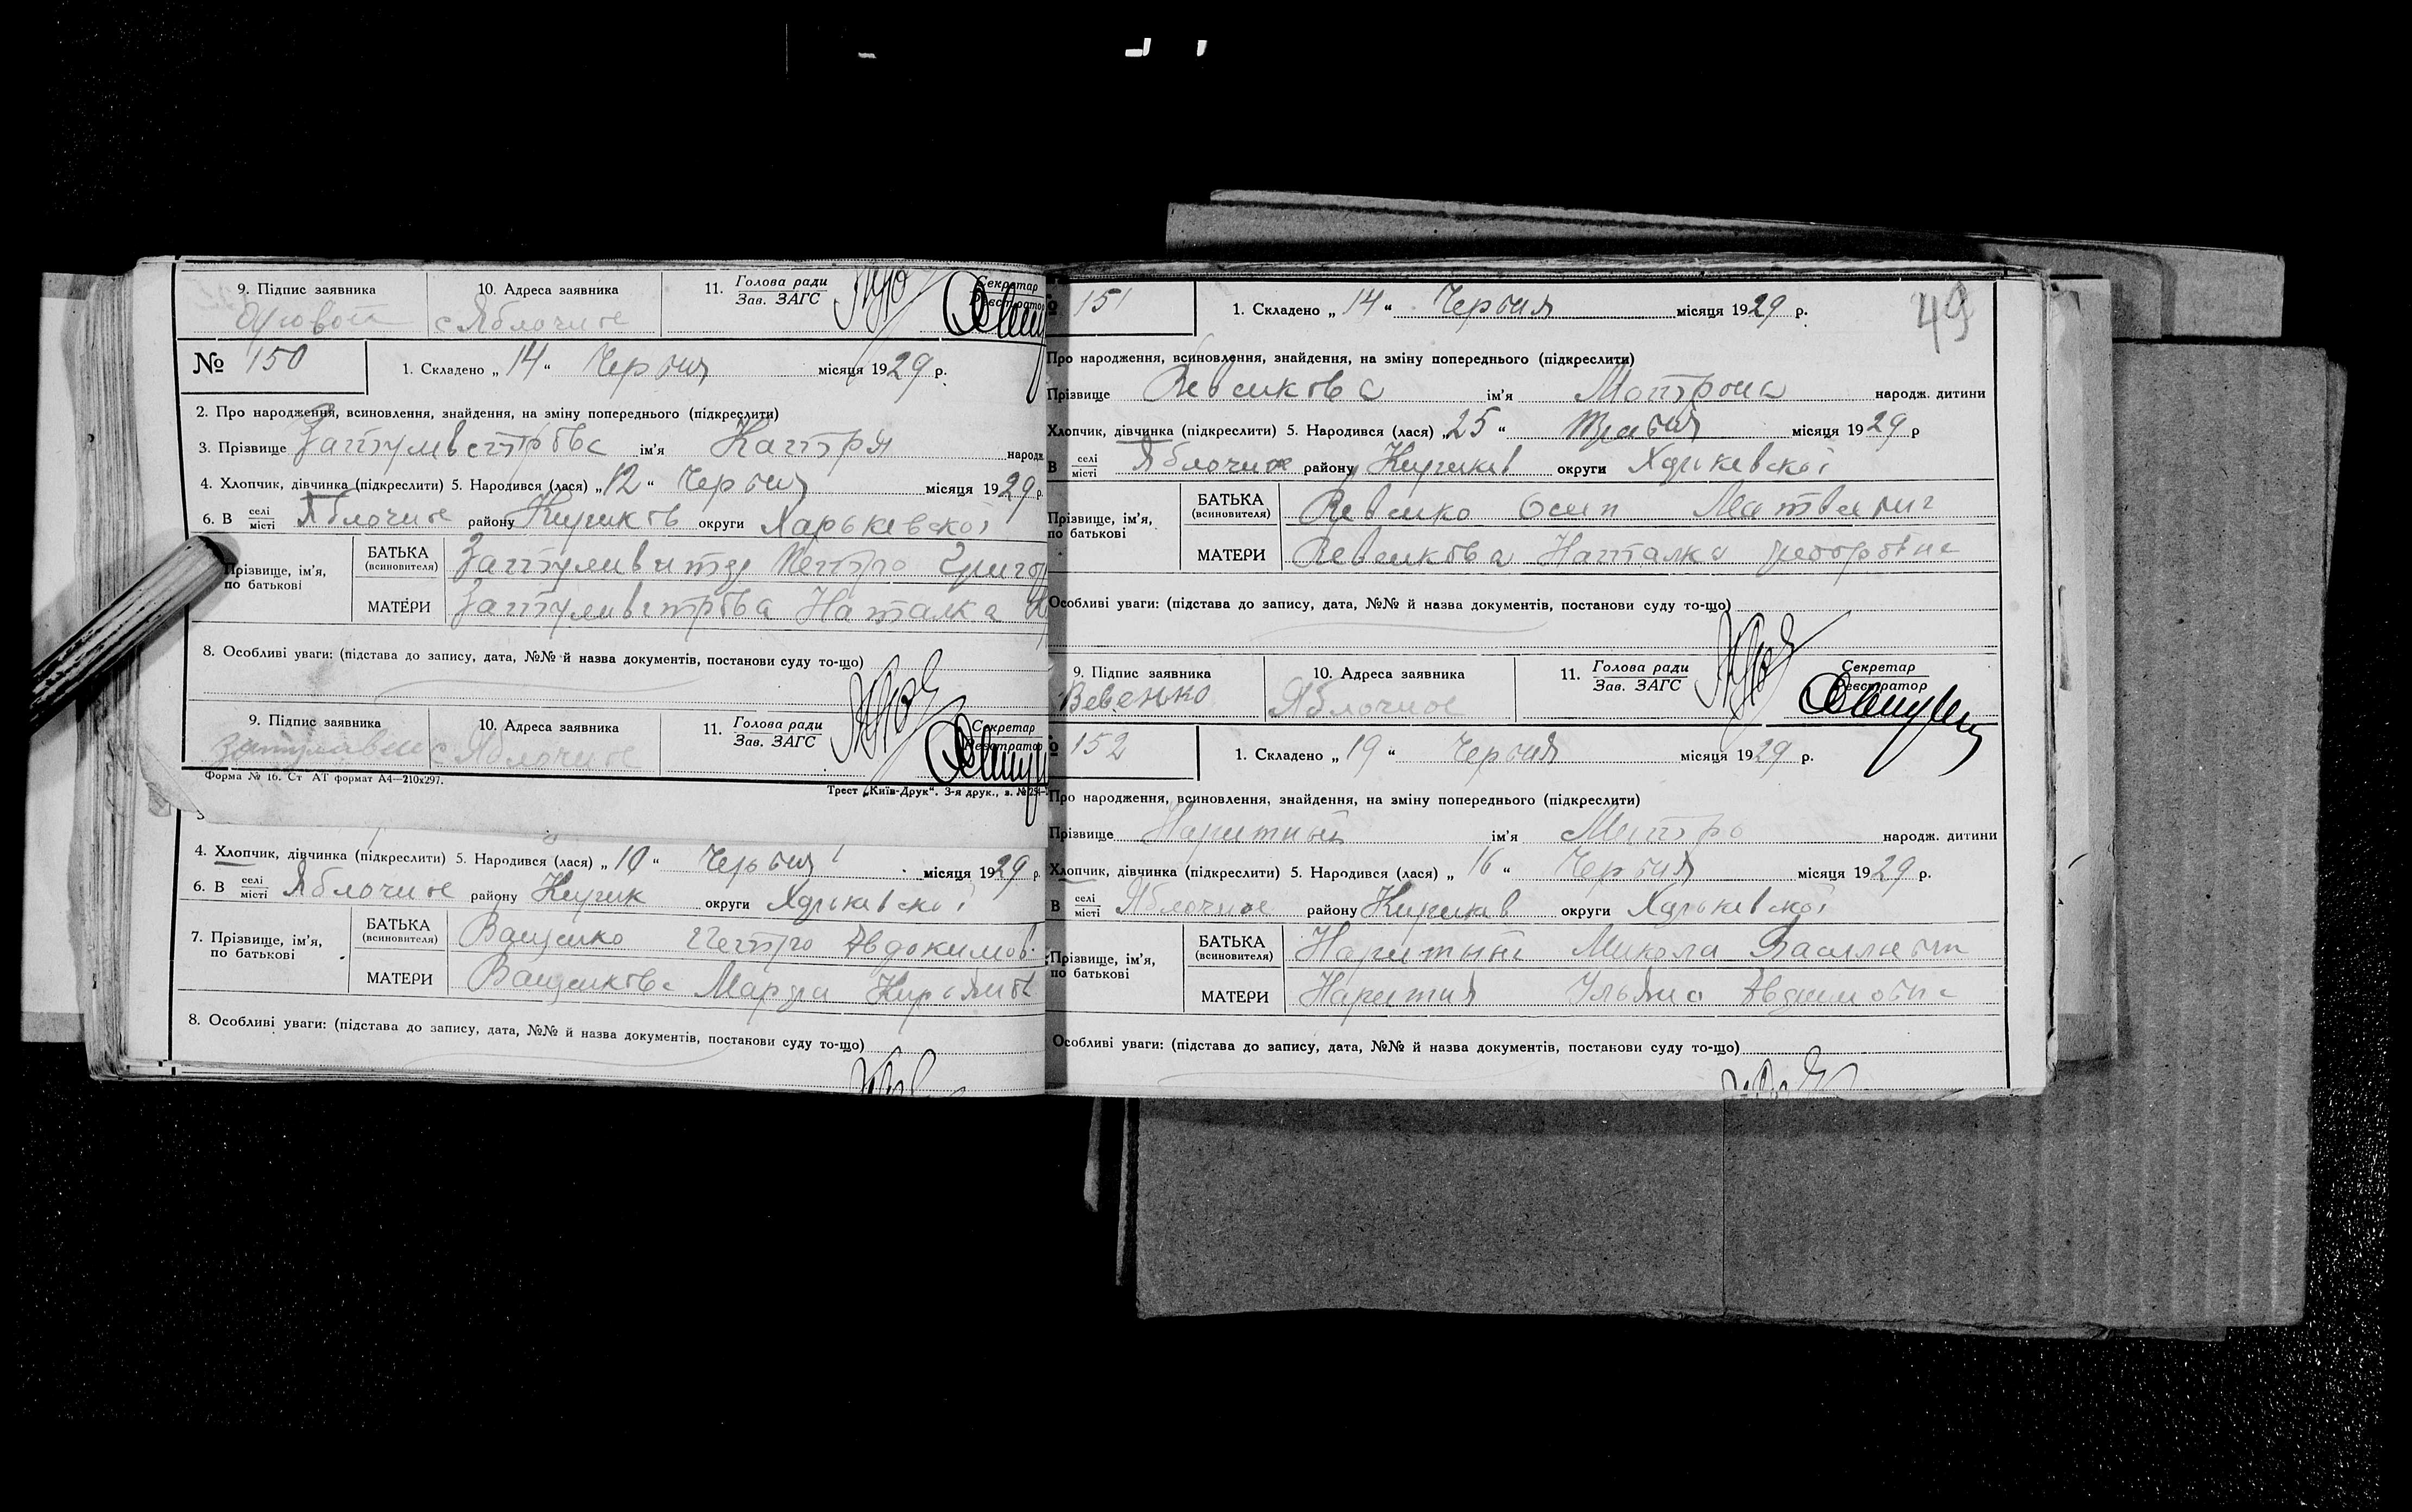 9. Підпис заявника 10. Адреса заявника 11. Голова ради Зав. ЗАГС Секретар Реєстратор
с Яблочное
№ 150 1. Складено „ 14 “ Червня місяця 1929 р.
2. Про народження, всиновлення, знайдення, на зміну попереднього (підкреслити)
3. Прізвище ім'я Катря народж.
4. Хлопчик, дівчинка (підкреслити) 5. Народився (лася) „ 12 “ Червня місяця 1929 р.
6. В селі місті Яблочное району округи Харьковской
Прізвище, ім'я, по батькові
БАТЬКА (всиновителя) Петро Григор
МАТЕРИ Наталка
8. Особливі уваги: (підстава до запису, дата, №№ й назва документів, постанови суду то-що)
9. Підпис заявника 10. Адреса заявника 11. Голова ради Зав. ЗАГС Секретар Реєстратор
с Яблочное
Форма № 16. Ст АТ формат А4—210x297.
Трест „Київ-Друк“. 3-я друк., з. №
4. Хлопчик, дівчинка (підкреслити) 5. Народився (лася) „ 10 “ Червня місяця 1929 р.
6. В селі місті Яблочное району Кирик округи Харьківської
7. Прізвище, ім'я, по батькові
БАТЬКА (всиновителя) Ващенко Петро Евдокимов.
МАТЕРИ Ващенкова Марфа
8. Особливі уваги: (підстава до запису, дата, №№ й назва документів, постанови суду то-що)
151 1. Складено „ 14 “ Червня місяця 1929 р. 49
Про народження, всиновлення, знайдення, на зміну попереднього (підкреслити)
Прізвище Ревенкова ім'я Мотрона народж. дитини
Хлопчик, дівчинка (підкреслити) 5. Народився (лася) „ 25 “ Травня місяця 1929 р
В селі місті Яблочное району Кириків округи Харьківської
Прізвище, ім'я, по батькові
БАТЬКА (всиновителя) Ревенко Осип Матвеевич
МАТЕРИ Ревенкова Наталка
Особливі уваги: (підстава до запису, дата, №№ й назва документів, постанови суду то-що)
9. Підпис заявника 10. Адреса заявника 11. Голова ради Зав. ЗАГС Секретар Реєстратор
Ревенько Яблочное
152 1. Складено „ 19 “ Червня місяця 1929 р.
Про народження, всиновлення, знайдення, на зміну попереднього (підкреслити)
Прізвище ім'я народж. дитини
Хлопчик, дівчинка (підкреслити) 5. Народився (лася) „ 16 “ Червня місяця 1929 р.
В селі місті Яблочное району Кириків округи Харьківської
Прізвище, ім'я, по батькові
БАТЬКА (всиновителя) Микола
МАТЕРИ Ульяна
Особливі уваги: (підстава до запису, дата, №№ й назва документів, постанови суду то-що)